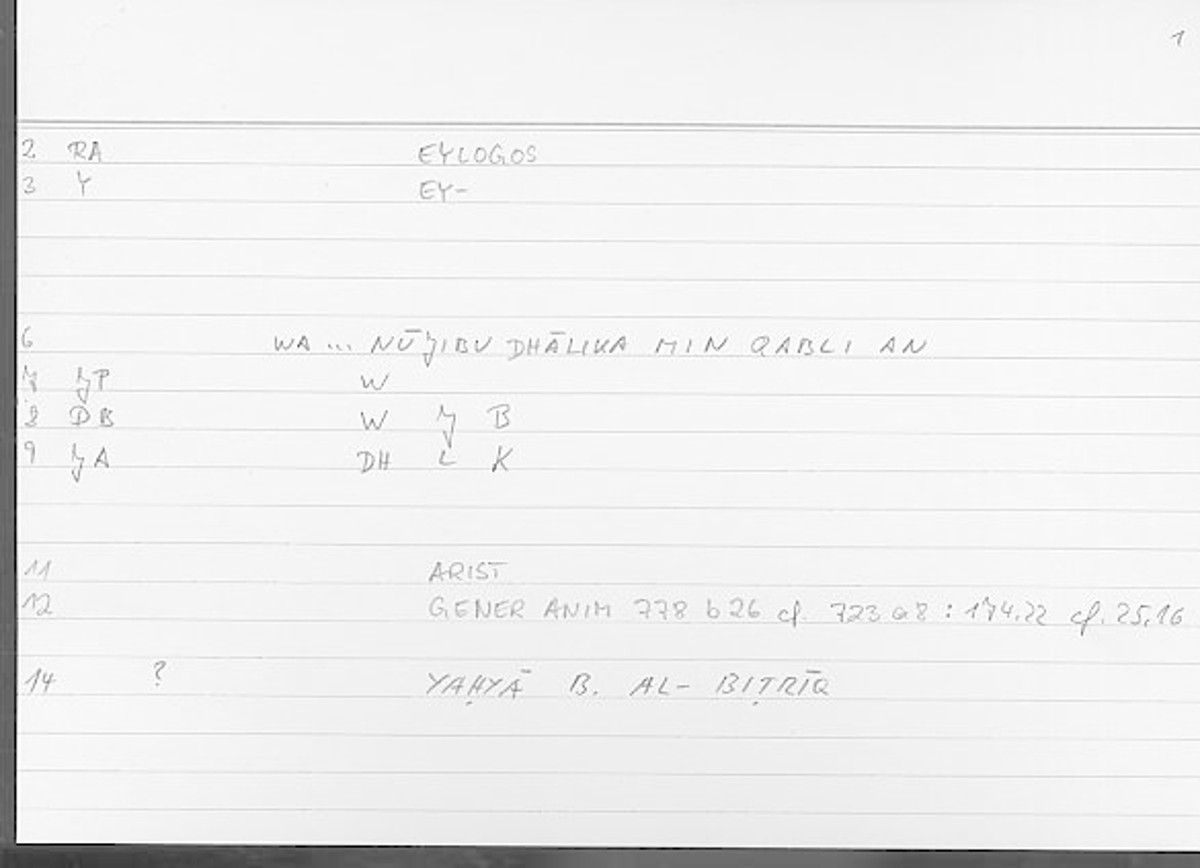 1
2 RA EYLOGOS
3 Y EY-
6 WA ... NŪJIBU DHĀLIKA MIN QABLI AN
7 JP W
8 DB W J B
9 JA DH L K
11 ARIST
12 GENER ANIM 778 b 26 cf. 723 a 8 : 174,22 cf. 25,16
14 ? YAḤYĀ B. AL- BIṬRĪQ